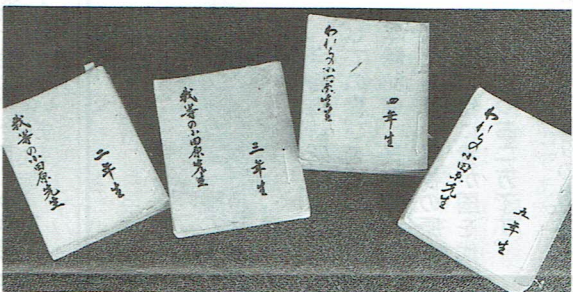 我等の小田原先生
二年生
我等の小田原先生
三年生
われらの小田原先生
四年生
われらの小田原先生
五年生